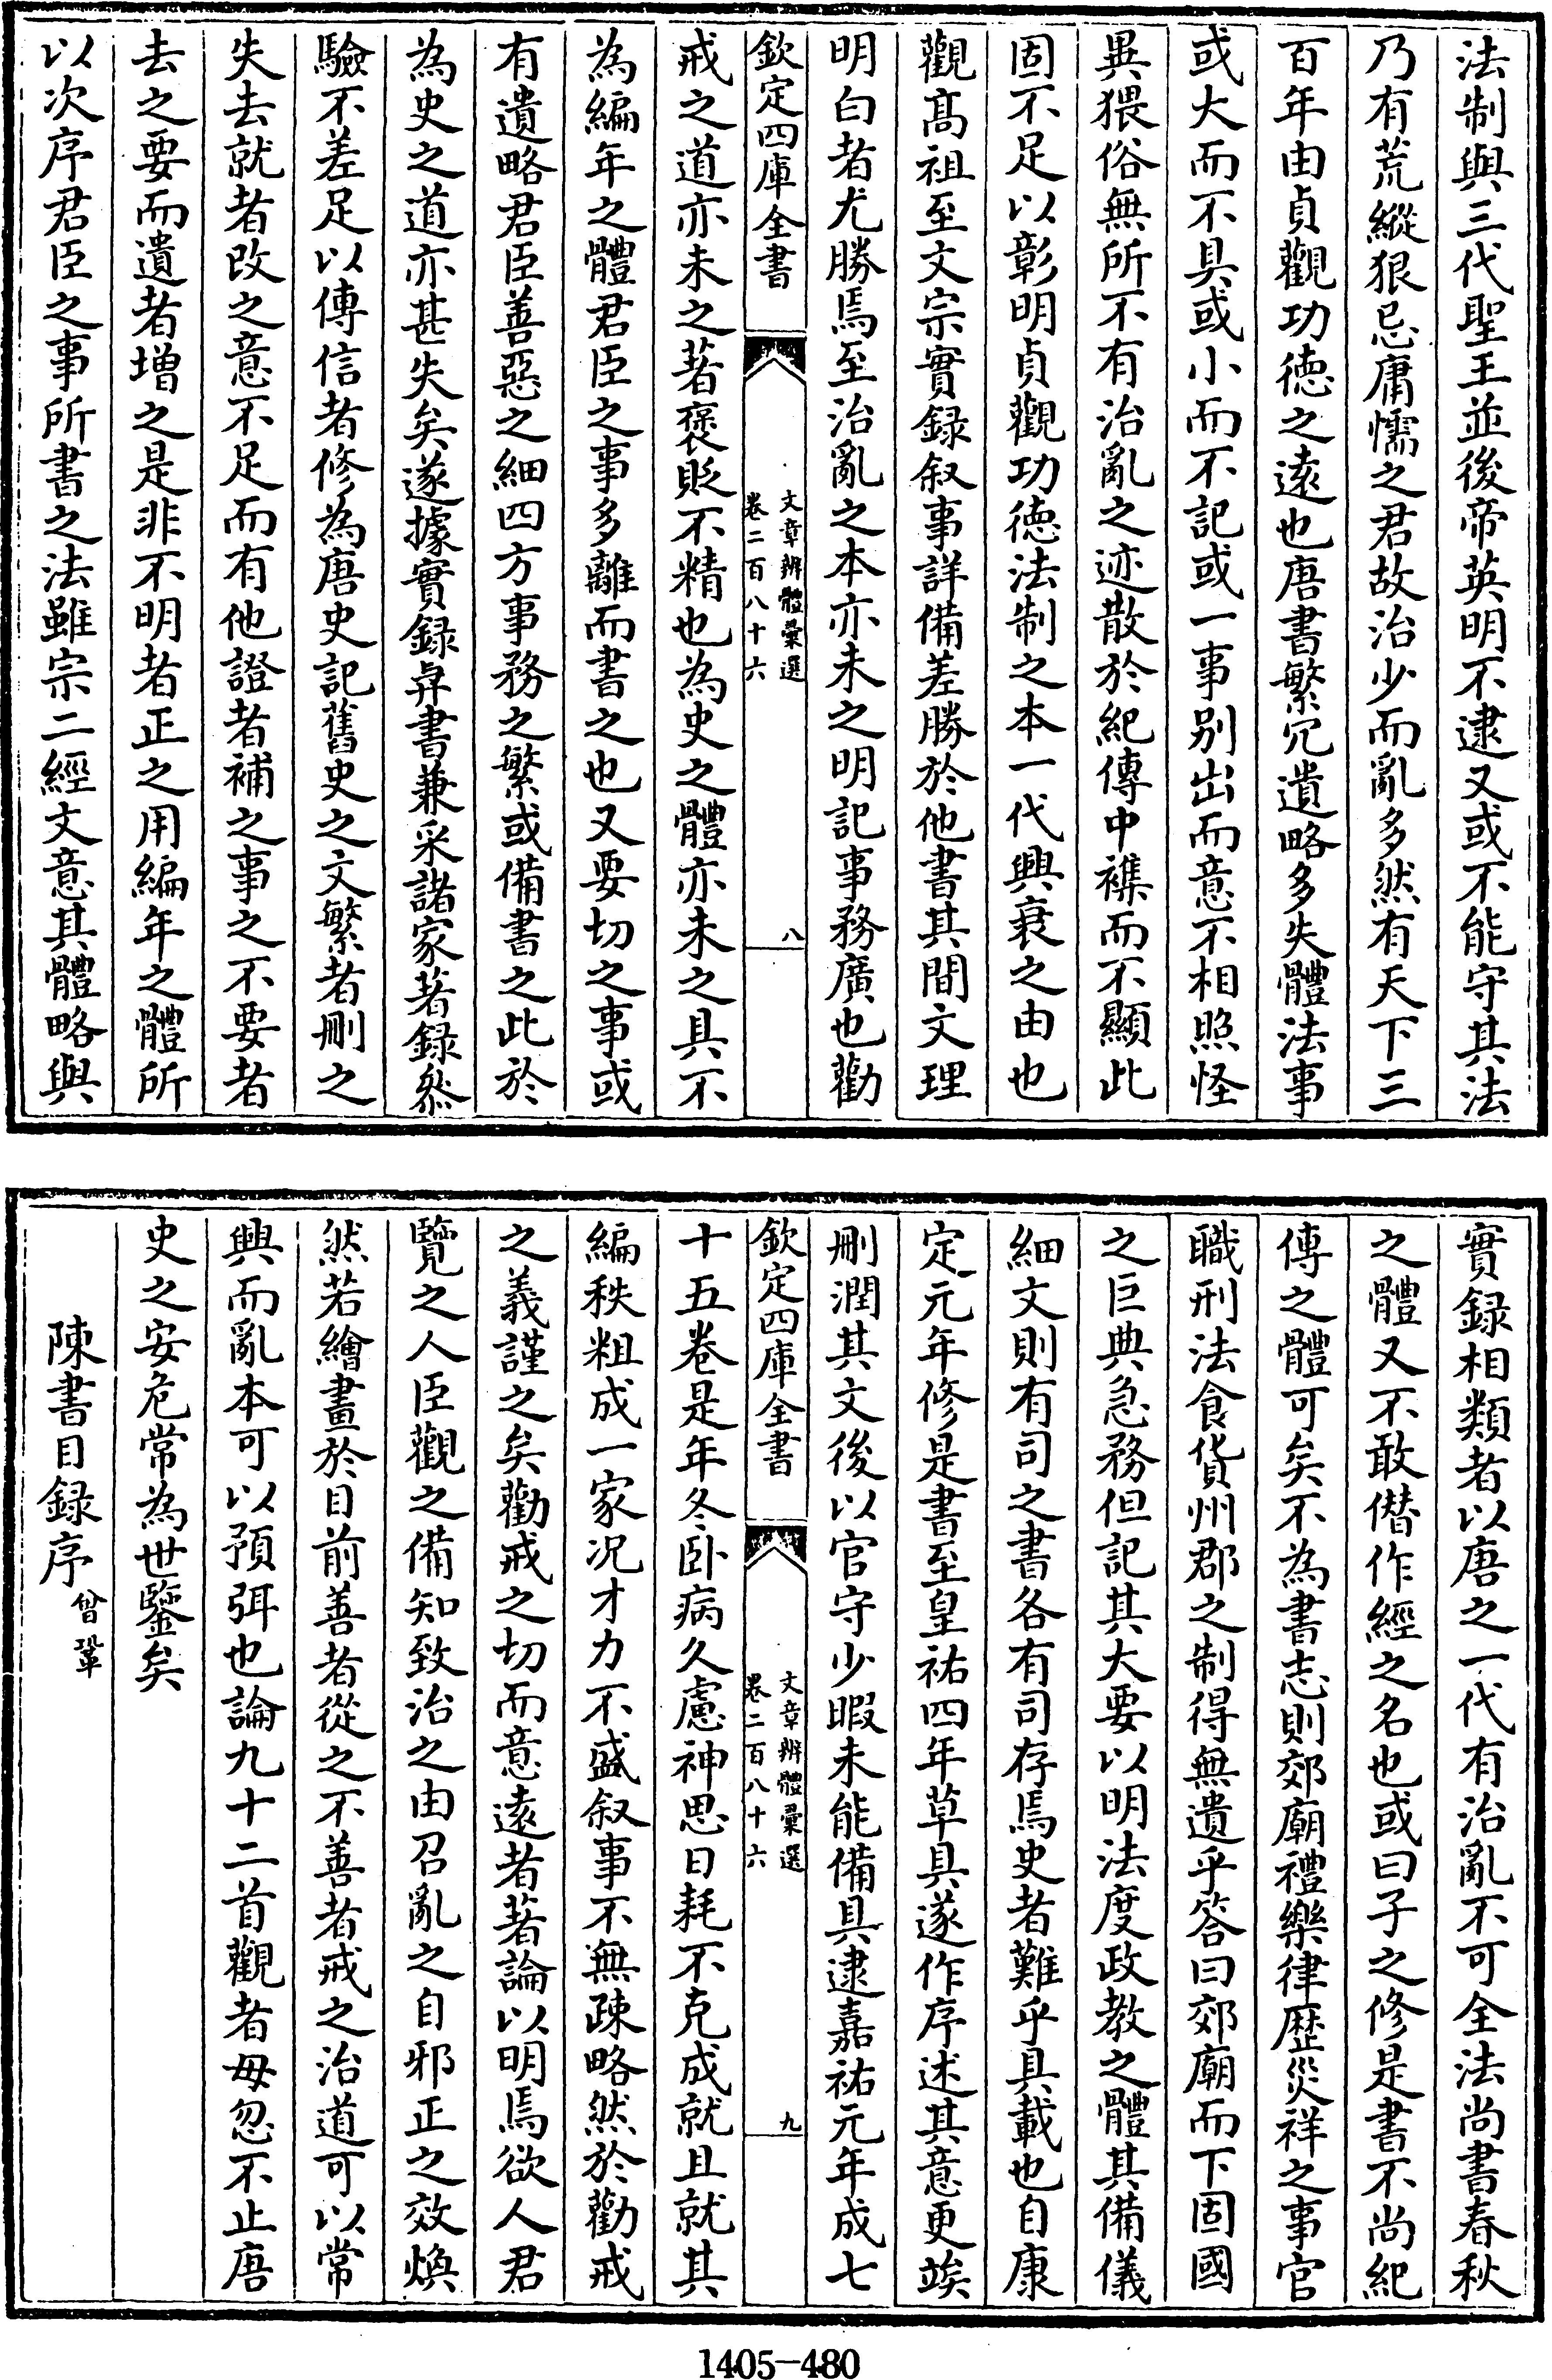 法制與三代聖王並後帝英明不逮又或不能守其法
乃有荒縱狠忌庸懦之君故治少而亂多然有天下三
百年由貞觀功徳之逺也唐書繁冗遺略多失體法事
或大而不具或小而不記或一事别出而意不相照怪
異猥俗無所不有治亂之迹散於紀傳中襍而不顯此
固不足以彰明貞觀功徳法制之本一代興衰之由也
觀髙祖至文宗實録叙事詳備差勝於他書其間文理
明白者尤勝焉至治亂之本亦未之明記事務廣也勸
欽定四庫全書
文章辨體彚選
卷二百八十六
八
戒之道亦未之著褒貶不精也為史之體亦未之具不
為編年之體君臣之事多離而書之也又要切之事或
有遺略君臣善惡之細四方事務之繁或備書之此於
為史之道亦甚失矣遂據實録與書兼采諸家著録叅
驗不差足以傳信者修為唐史記舊史之文繁者刪之
失去就者改之意不足而有他證者補之事之不要者
去之要而遺者増之是非不明者正之用編年之體所
以次序君臣之事所書之法雖宗二經文意其體略與
實録相類者以唐之一代有治亂不可全法尚書春秋
之體又不敢僣作經之名也或曰子之修是書不尚紀
傳之體可矣不為書志則郊廟禮樂律歴災祥之事官
職刑法食貨州郡之制得無遺乎答曰郊廟而下固國
之巨典急務但記其大要以明法度政教之體其備儀
細文則有司之書各有司存焉史者難乎具載也自康
定元年修是書至皇祐四年草具遂作序述其意更竢
刪潤其文後以官守少暇未能備具逮嘉祐元年成七
欽定四庫全書
文章辨體彚選
卷二百八十六
九
十五卷是年冬卧病久慮神思日耗不克成就且就其
編秩粗成一家况才力不盛叙事不無疎略然於勸戒
之義謹之矣勸戒之切而意逺者著論以明焉欲人君
覽之人臣觀之備知致治之由召亂之自邪正之效煥
然若繪畫於目前善者從之不善者戒之治道可以常
興而亂本可以預弭也論九十二首觀者毋忽不止唐
史之安危常為世鑒矣
陳書目録序 曾鞏
1405-480